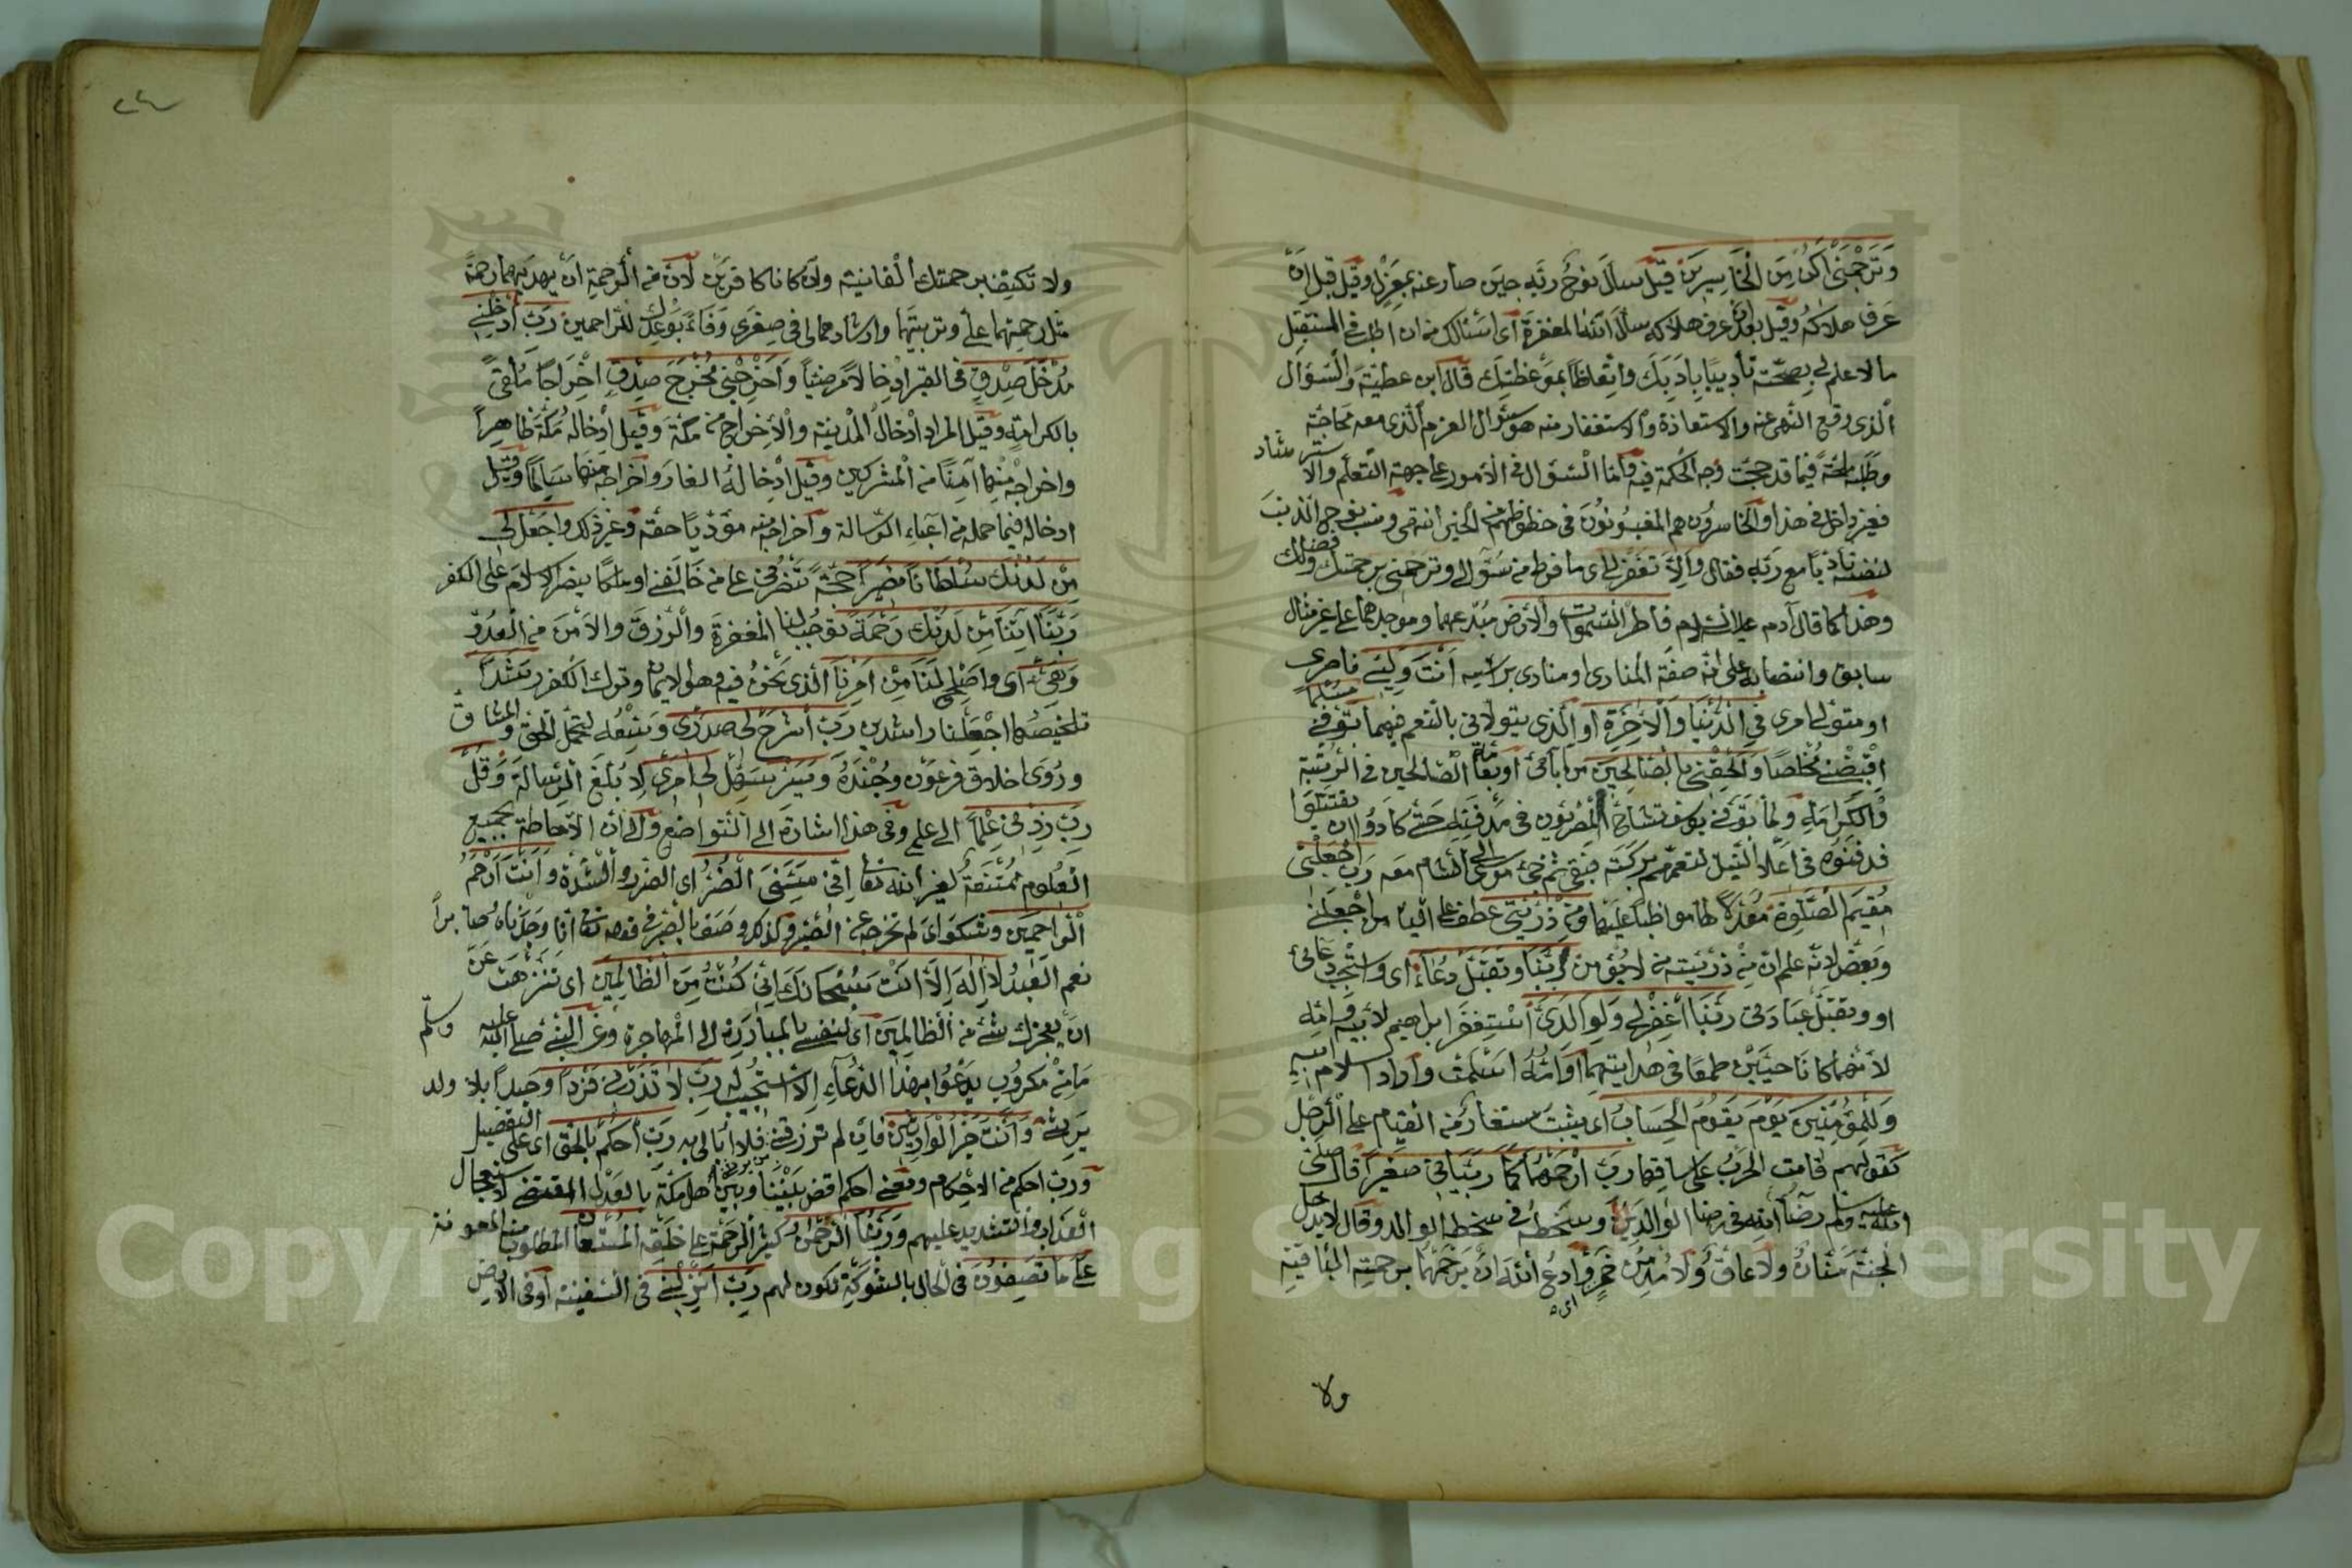 وَتَرْحَمْنِي أَكُنْ مِنَ الْخَاسِرِينَ قيل سأل نوح ربّه حين صار عنه بمعزل وقيل قبل ان
عرف هلاكه وقيل بعد ان عرف هلاكه سأل الله المغفرة اى اسئالك من ان اطلب فى المستقبل
ما لا علم لى بصحّته تأديبا بادبك واتعاظا بموعظتك قال ابن عطية والسؤال
الذى وقع النهى عنه والاستعاذة والاستغفار منه هو سئوال العزم الذى معه محاجّة
وطلبة ملحّة فيما قد حجبت وجه الحكمة فيه وامّا السئوال فى الامور على جهة التعلّم والاسترشاد
فغير داخل فى هذا والخاسرون هم المغبونون فى حظوظهم من الخير انتهى ونسب نوح الذنب
لنفسه تأدّبا مع ربّه فقال والّا تغفر لى اى ما فرط من سئوالى وترحمنى برحمتك وفضلك
وهذا كما قال آدم عليه السلام فاطر السموات والارض مبدعهما وموجدهما على غير مثال
سابق وانتصابه على انّه صفة المنادى او منادى براسه أَنْتَ وَلِيِّي ناصرى
او متولى امرى فِي الدُّنْيَا وَالْآخِرَةِ او الّذى يتولانى بالنعم فيهما تَوَفَّنِي مُسْلِمًا
اقبضنى مخلصا وَأَلْحِقْنِي بِالصَّالِحِينَ من آبائى او بعامّة الصالحين فى الرتبة
والكرامة ولما توفى يوسف تشاحّ المصريون فى مدفنه حتى كادوا ان يقتتلوا
فدفنوه فى اعلا النيل لتعمهم بركته فبقى ثم نقله موسى الى الشام معه رَبِّ اجْعَلْنِي
مُقِيمَ الصَّلٰوةِ معدلا لها مواظبا عليها وَمِنْ ذُرِّيَّتِي عطف على الياء من اجعلنى
وبعّض لانه علم ان من ذريته من لا يؤمن رَبَّنَا وَتَقَبَّلْ دُعَاءِ اى واستجب دعائى
او وتقبل عبادتى رَبَّنَا اغْفِرْ لِي وَلِوَالِدَيَّ استغفر ابراهيم لابيه وامّه
لأنهما كانا حيّين طمعا فى هدايتهما او امّه اسلمت واراد اسلام ابيه
وَلِلْمُؤْمِنِينَ يَوْمَ يَقُومُ الْحِسَابُ اى يثبت مستعار من القيام على الرجل
كقولهم قامت الحرب على ساقها رَبِّ ارْحَمْهُمَا كَمَا رَبَّيَانِي صَغِيرًا قال صلى
الله عليه وسلم رضا الله فى رضا الوالدين وسخطه فى سخط الوالد وقال لا يدخل
الجنّة منّان ولا عاقّ ولا مدمن خمر وادع الله ان يرحمهما برحمته الباقية
اى
ولا
ولا تكتف برحمتك الفانية وان كانا كافرين لان من الرحمة ان يهديهما رحمة
مثل رحمتهما علىّ وتربيتهما وارشادهما لى فى صغرى وفاء بوعدك للراحمين رَبِّ أَدْخِلْنِي
مُدْخَلَ صِدْقٍ فى القبر ادخالا مرضيا وَأَخْرِجْنِي مُخْرَجَ صِدْقٍ اخراجا ملقى
بالكرامة وقيل المراد ادخال المدينة والاخراج من مكّة وقيل ادخاله مكّة ظاهرا
واخراجه منها آمنا من المشركين وقيل ادخاله الغار واخراجه منه سالما وقيل
ادخاله فيما حمله من اعباء الرسالة واخراجه منه مؤدّيا حقّه وغير ذلك وَاجْعَلْ لِي
مِنْ لَدُنْكَ سُلْطَانًا نَصِيرًا حجّة تنصرنى على من خالفنى او ملكا ينصر الاسلام على الكفر
رَبَّنَا آتِنَا مِنْ لَدُنْكَ رَحْمَةً توجب لنا المغفرة والرزق والامن من العدوّ
وَهَيِّئْ اى واصلح لَنَا مِنْ أَمْرِنَا الذى نحن فيه وهو الايمان وترك الكفر رَشَدًا
تلخيصه اجعلنا راشدين رَبِّ اشْرَحْ لِي صَدْرِي وسّعه لتحمّل الحق والمشاق
وردى اخلاق فرعون وجنده وَيَسِّرْ سهّل لِي أَمْرِي لأبلغ الرسالة وَقُلْ
رَبِّ زِدْنِي عِلْمًا الى علم وفى هذا اشارة الى التواضع والى ان الاحاطة بجميع
العلوم ممتنعة لغير الله تعا أَنِّي مَسَّنِيَ الضُّرُّ اى الضرر والشدة وَأَنْتَ أَرْحَمُ
الرَّاحِمِينَ وشكواى لم تخرجه عن الصبر ولذلك وصف بالصبر فى قوله تعا انّا وجدناه صابرا
نعم العبد لَا إِلَهَ إِلَّا أَنْتَ سُبْحَانَكَ إِنِّي كُنْتُ مِنَ الظَّالِمِينَ اى تنزهت عن
ان يعجزك شئ من الظالمين اى لنفسى بالمبادرة الى المهاجرة وعن النبى صلى الله عليه وسلّم
ما من مكروب يدعوا بهذا الدعاء الا استجيب له رَبِّ لَا تَذَرْنِي فَرْدًا وحيدا بلا ولد
يرثنى وَأَنْتَ خَيْرُ الْوَارِثِينَ فان لم ترزقنى من يرثنى فلا ابالى به رَبِّ احْكُمْ بِالْحَقِّ اى على التفضيل
ورب احكم من الاحكام ومعنى احكم اقض بيننا وبين اهل مكة بالعدل المقتضى لاستعجال
العذاب والتشديد عليهم وَرَبُّنَا الرَّحْمَنُ كثير الرحمة على خلقه الْمُسْتَعَانُ المطلوب منه المعونة
عَلَى مَا تَصِفُونَ فى الحال بالشوكة تكون لهم رَبِّ أَنْزِلْنِي فى السفينة او فى الارض